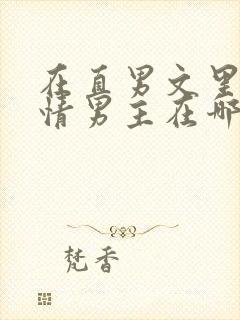 在直男文里
情男主在哪
梵香